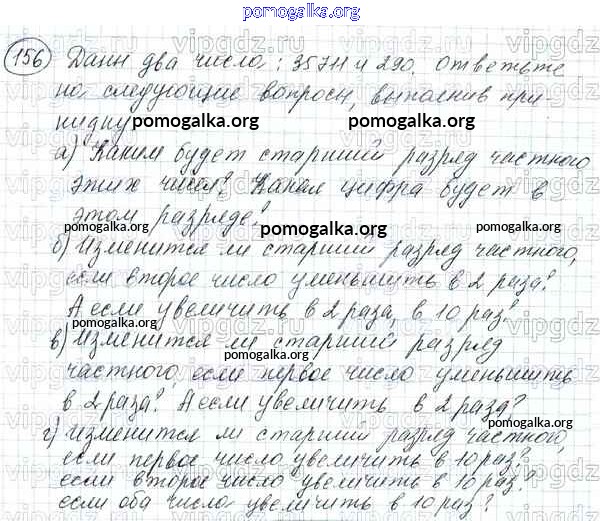 pomogalka.org
156 Даны два числа: 35711 и 290. Ответьте
на следующие вопросы, выполнив при-
кидку
pomogalka.org pomogalka.org
а) Каким будет старший разряд частного
этих чисел? Какая цифра будет в
этом разряде?
pomogalka.org pomogalka.org
б) Изменится ли старший разряд частного,
если второе число уменьшить в 2 раза?
А если увеличить в 2 раза, в 10 раз?
pomogalka.org pomogalka.org
в) Изменится ли старший разряд
частного, если первое число уменьшить
в 2 раза? А если увеличить в 2 раза?
pomogalka.org
г) Изменится ли старший разряд частного,
если первое число увеличить в 10 раз?
если второе число увеличить в 10 раз?
если оба числа увеличить в 10 раз?
pomogalka.org